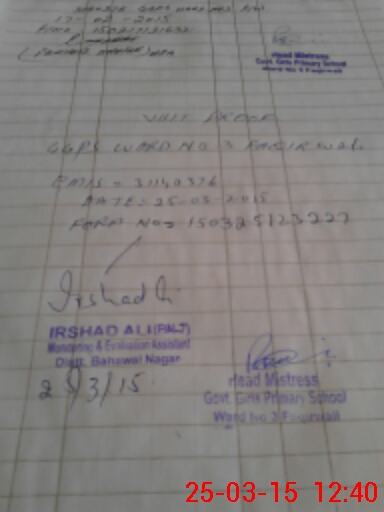 17-02-2015
Head Mistress
Govt. Girls Primary School
Ward No 3 Faqirwali
VISIT PROOF
GGPS WARD NO 3 FAQIRWALI
EMIS = 31140376
DATE = 25-03-2015
FORM NO = 150325123227
Irshad Ali
IRSHAD ALI (PAL-7)
Monitoring & Evaluation Assistant
Distt. Bahawal Nagar
25/3/15
Head Mistress
Govt. Girls Primary School
Ward No 3 Faqirwali
25-03-15 12:40